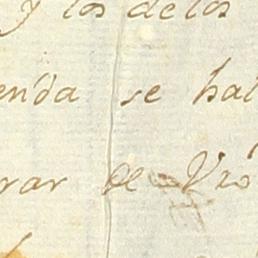 y los de los
enda se hal
rar de Vro